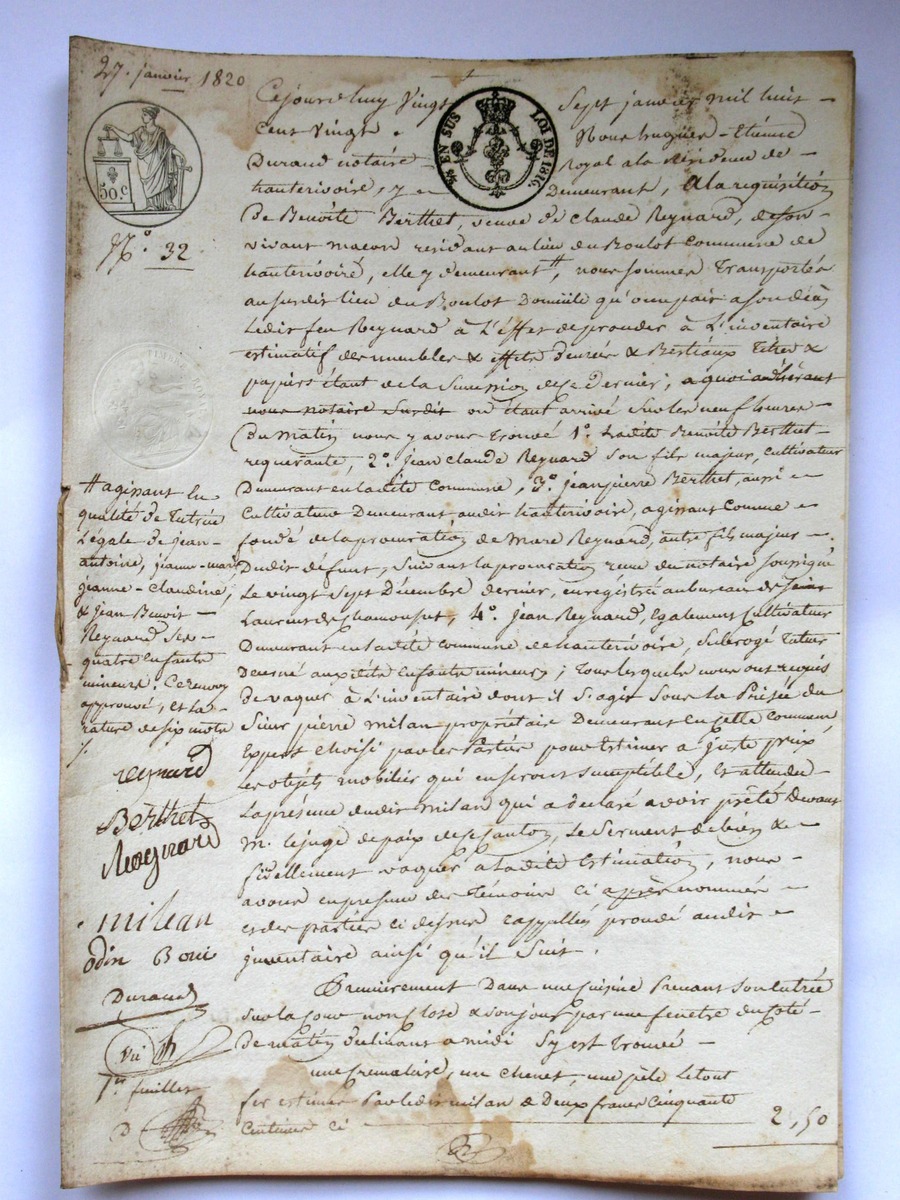 27. janvier 1820
50.c
⅖ EN SUS LOI DE 1816.
N.° 32
Cejourd'huy Vingt Sept janvier mil huit
Cent Vingt. Nous hugues-Etienne
Durand notaire Royal ala Résidence de
hauterivoire, y Demeurant, Ala requisition
De Benoîte Berthet, veuve de Claude Reynard, deson
vivant maçon residant aulieu du Boulot Commune de
hauterivoire, elle y demeurant #, nous sommes Transportés
ausurdit lieu du Boulot Domicile qu'occupait ason décès
Ledit feu Reynard à L'effet de proceder à L'inventaire
estimatif des meubles & effets denrées & Bestiaux Titres &
papiers étant de la Succession dece dernier, a quoi adhérant
nous notaire Susdit où étant arrivé Sur les neuf heures
Du matin nous y avons Trouvé 1°. Ladite Benoîte Berthet
requerante, 2°. jean Claude Reynard Son fils majeur, cultivateur
Demeurant enladite Commune, 3°. jean pierre Berthet, aussi
Cultivateur Demeurant audit hauterivoire, agissant Comme
fondé de la procuration de Marc Reynard, autre fils majeur
Dudit défunt, Suivant la procuration reçue du notaire soussigné
Le vingt Sept Décembre dernier, enregistrée au bureau de Saint
Laurent de Chamousset, 4°. jean Reynard, Egalement Cultivateur
Demeurant enladite commune de hauterivoire, Subrogé Tuteur
Decerné auxdits enfants mineurs; Tous lesquels nous ont requis
De vaquer à L'inventaire dont il S'agit Sous la Prisée du
Sieur pierre milan propriétaire Demeurant en cette Commune
Expert Choisi par les Parties pour Estimer a juste prix
Les objets mobilier qui en seront Susceptible, Et attendu
La présence dudit milan qui a declaré avoir prêté Devant
M. Le juge de paix de ce Canton Le Serment de bien &
fidellement vaquer a Ladite Estimation, nous
avons en presence des Témoins Ci après nommés
et des parties ci dessus rappellés procedé audit
inventaire ainsi qu'il Suit.
Premièrement Dans une cuisine Prenant Son Entrée
sur la Cour non close & Son jour par une fenêtre du Coté
De matin declinant a midi S'y est Trouvé
une Cremaillère, un Chenet, une pèle Le tout
fer estimés Par ledit milan à Deux francs Cinquante
Centimes ci 2,50
# agissant en
qualité de Tutrice
Légale de Jean-
antoine, jeanne-marie
jeanne-Claudine,
& jean Benoit
Reynard Ses
quatre Enfants
mineurs. Ce renvoi
approuvé, et La
rature de six mots
reynard
Berthet
Reaynard
milean
odin Boni
Durand
Vu
1er feuillet
D